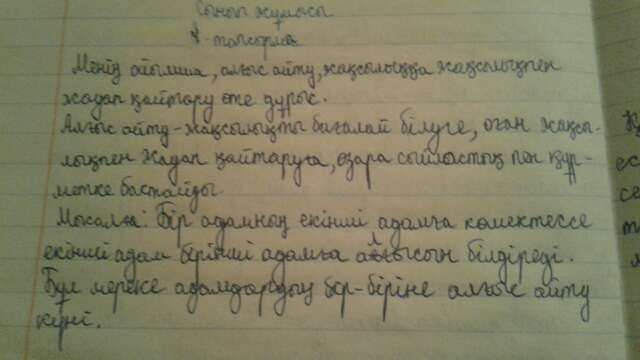 Сынып жұмысы
-тапсырма
Менің ойымша, алғыс айту, жақсылыққа жақсылықпен
жауап қайтару өте дұрыс.
Алғыс айту-жақсылықты бағалай білуге, оған жақсы-
лықпен жауап қайтаруға, өзара сыйластық пен құр-
метке бастайды
Мысалға: Бір адамның екінші адамға көмектессе
екінші адам бірінші адамға алғысын білдіреді.
Бұл мереке адамдардың бір-біріне алғыс айту
күні.